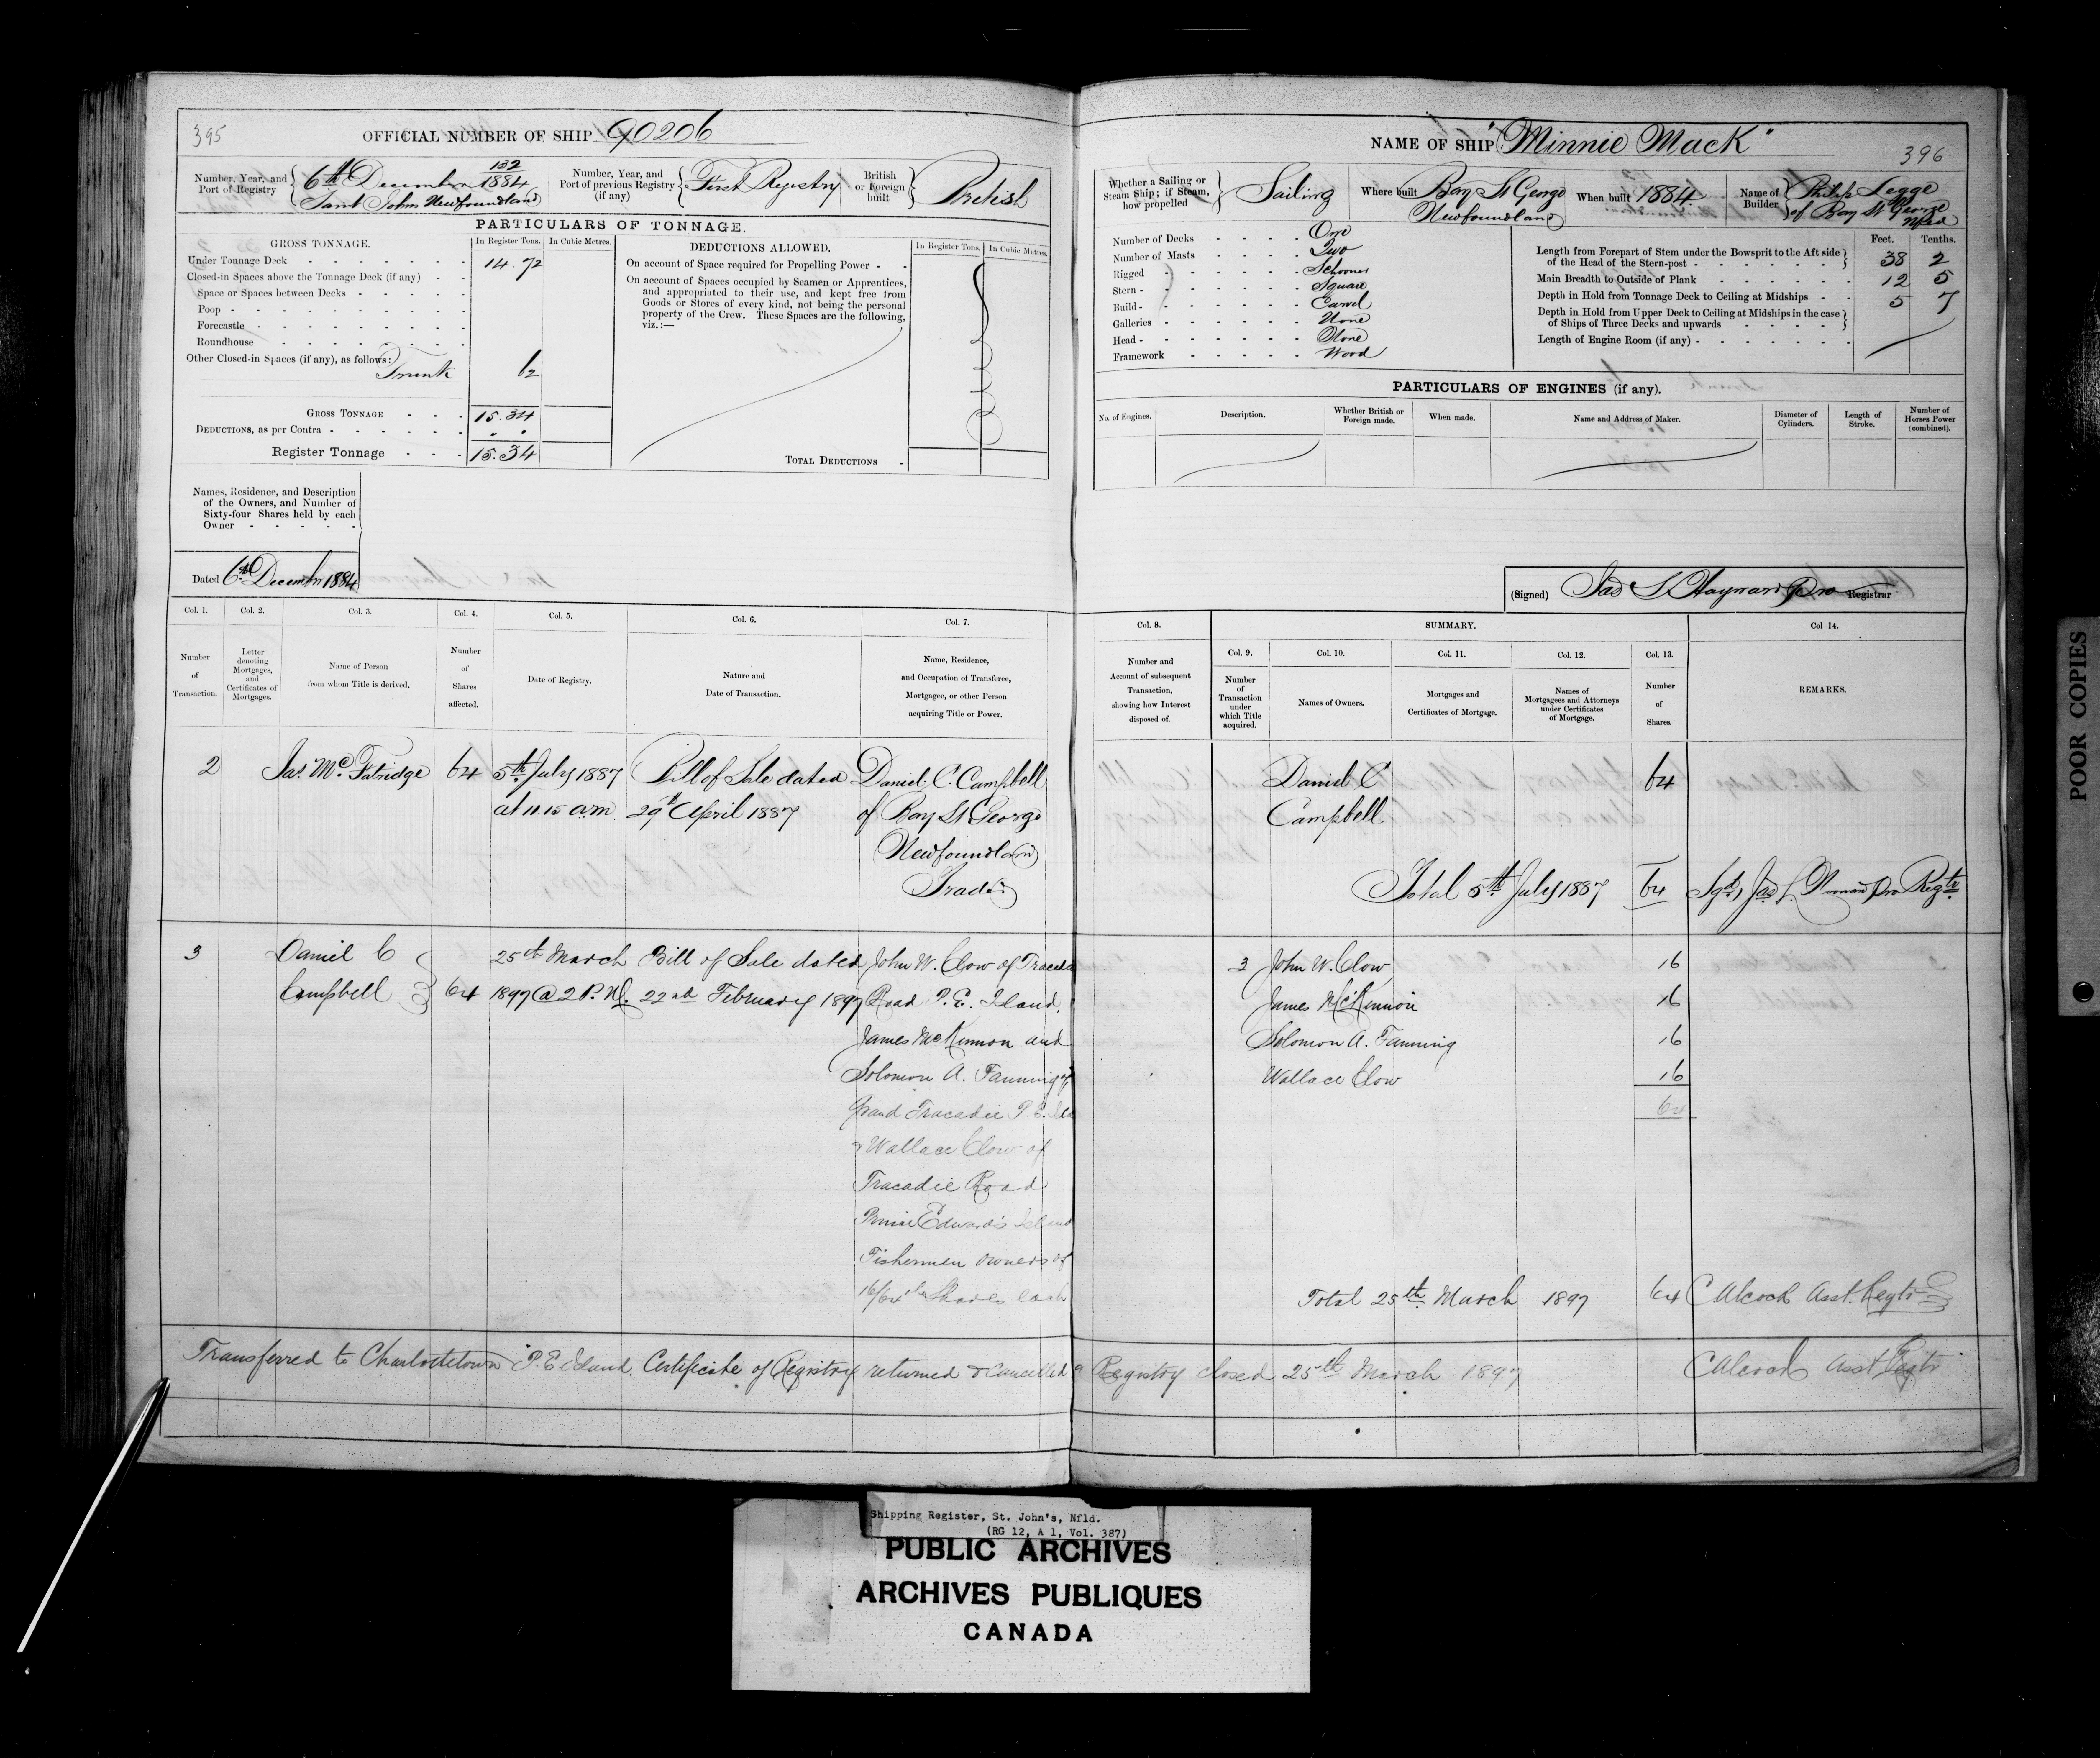 395
OFFICIAL NUMBER OF SHIP 90206
Number, Year, and Port of Registry
132
6th December 1884
Saint Johns Newfoundland
Number, Year, and Port of previous Registry (if any)
First Registry
British or Foreign built
British
PARTICULARS OF TONNAGE.
GROSS TONNAGE.
In Register Tons.
In Cubic Metres.
DEDUCTIONS ALLOWED.
In Register Tons.
In Cubic Metres.
Under Tonnage Deck 14.72
Closed-in Spaces above the Tonnage Deck (if any)
Space or Spaces between Decks
Poop
Forecastle
Roundhouse
Other Closed-in Spaces (if any), as follows:
Trunk 62
GROSS TONNAGE 15.34
DEDUCTIONS, as per Contra
Register Tonnage 15.34
On account of Space required for Propelling Power
On account of Spaces occupied by Seamen or Apprentices,
and appropriated to their use, and kept free from
Goods or Stores of every kind, not being the personal
property of the Crew. These Spaces are the following,
viz.:—
TOTAL DEDUCTIONS
Names, Residence, and Description
of the Owners, and Number of
Sixty-four Shares held by each
Owner
Dated 6th December 1884
Col. 1.
Number of Transaction.
Col. 2.
Letter denoting Mortgages, and Certificates of Mortgages.
Col. 3.
Name of Person from whom Title is derived.
Col. 4.
Number of Shares affected.
Col. 5.
Date of Registry.
Col. 6.
Nature and Date of Transaction.
Col. 7.
Name, Residence, and Occupation of Transferee, Mortgagee, or other Person acquiring Title or Power.
2 Jas. Mc. Fatridge 64 5th July 1887 Bill of Sale dated Daniel C. Campbell
at 11.15 a.m. 29th April 1887 of Bay St George
Newfoundland
Trader
3 Daniel C 25th March Bill of Sale dated John W. Clow of Tracadie
Campbell 64 1897 @ 2 P.M. 22nd February 1897 Road P.E. Island,
James McKinnon and
Solomon A. Fanning of
Grand Tracadie P.E.
& Wallace Clow of
Tracadie Road
Prince Edward's Island
Fishermen owners of
16/64ths Shares each
Transferred to Charlottetown P.E Island. Certificate of Registry returned & Cancelled & Registry closed 25th March 1897 C Alcock Asst Regtr
NAME OF SHIP "Minnie Mack"
396
Whether a Sailing or Steam Ship; if Steam, how propelled
Sailing
Where built
Bay St George
Newfoundland
When built 1884
Name of Builder
Philip Legge
of Bay St George
Nfld
Number of Decks One
Number of Masts Two
Rigged Schooner
Stern Square
Build Carvel
Galleries None
Head None
Framework Wood
Feet. Tenths.
Length from Forepart of Stem under the Bowsprit to the Aft side
of the Head of the Stern-post 38 2
Main Breadth to Outside of Plank 12 5
Depth in Hold from Tonnage Deck to Ceiling at Midships 5 7
Depth in Hold from Upper Deck to Ceiling at Midships in the case
of Ships of Three Decks and upwards
Length of Engine Room (if any)
PARTICULARS OF ENGINES (if any).
No. of Engines.
Description.
Whether British or Foreign made.
When made.
Name and Address of Maker.
Diameter of Cylinders.
Length of Stroke.
Number of Horses Power (combined).
(Signed) Jas S. Hayward Pro Registrar
Col. 8.
Number and Account of subsequent Transaction, showing how Interest disposed of.
SUMMARY.
Col. 9.
Number of Transaction under which Title acquired.
Col. 10.
Names of Owners.
Col. 11.
Mortgages and Certificates of Mortgage.
Col. 12.
Names of Mortgagees and Attorneys under Certificates of Mortgage.
Col. 13.
Number of Shares.
Col 14.
REMARKS.
Daniel C 64
Campbell
Total 5th July 1887 64 Sgd, Jas Pro Regtr
3 John W. Clow 16
James McKinnon 16
Solomon A. Fanning 16
Wallace Clow 16
64
Total 25th March 1897 64 C Alcock Asst. Regtr
POOR COPIES
Shipping Register, St. John's, Nfld.
(RG 12, A 1, Vol. 387)
PUBLIC ARCHIVES
ARCHIVES PUBLIQUES
CANADA